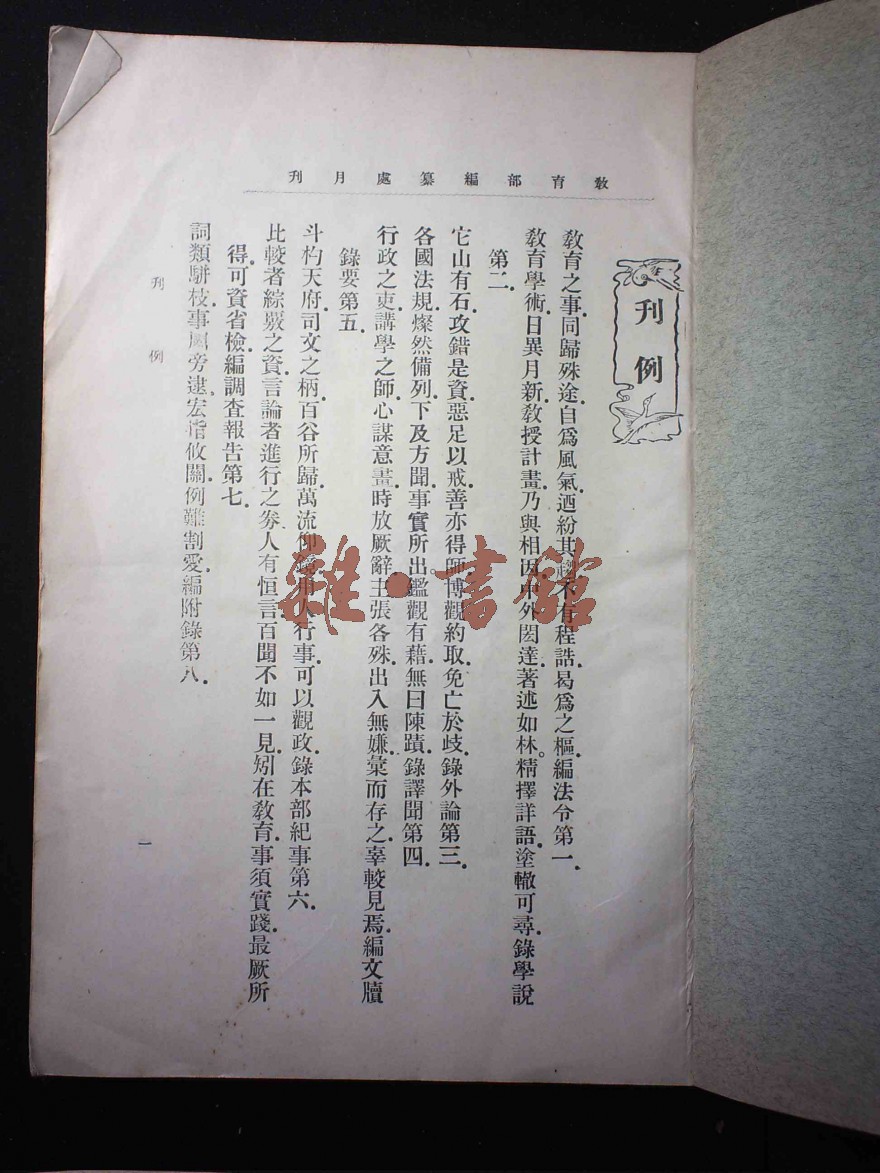 教育部編纂處月刊
刊例
教育之事.同歸殊途.自爲風氣.迺紛其不有程誥.曷爲之樞.編法令第一.
教育學術.日異月新.教授計畫.乃與相因.中外閎達.著述如林。精擇詳語.塗轍可尋.錄學說
第二.
它山有石.攻錯是資.惡足以戒.善亦得師.博觀約取.免亡於歧.錄外論第三.
各國法規.燦然備列.下及方聞.事實所出。鑑觀有藉.無曰陳蹟.錄譯聞第四.
行政之吏.講學之師.心謀意畫.時放厥辭.主張各殊.出入無嫌.彙而存之.辜較見焉.編文牘
錄要第五.
斗杓天府.司文之柄.百谷所歸.萬流仰鏡.用人行事.可以觀政.錄本部紀事第六.
比較者綜覈之資.言論者進行之券.人有恒言.百聞不如一見.矧在教育.事須實踐.最厥所
得.可資省檢.編調查報告第七.
詞類駢枝.事旁逮.宏恉攸關.例難割愛.編附錄第八.
刊例
一
雜·書館